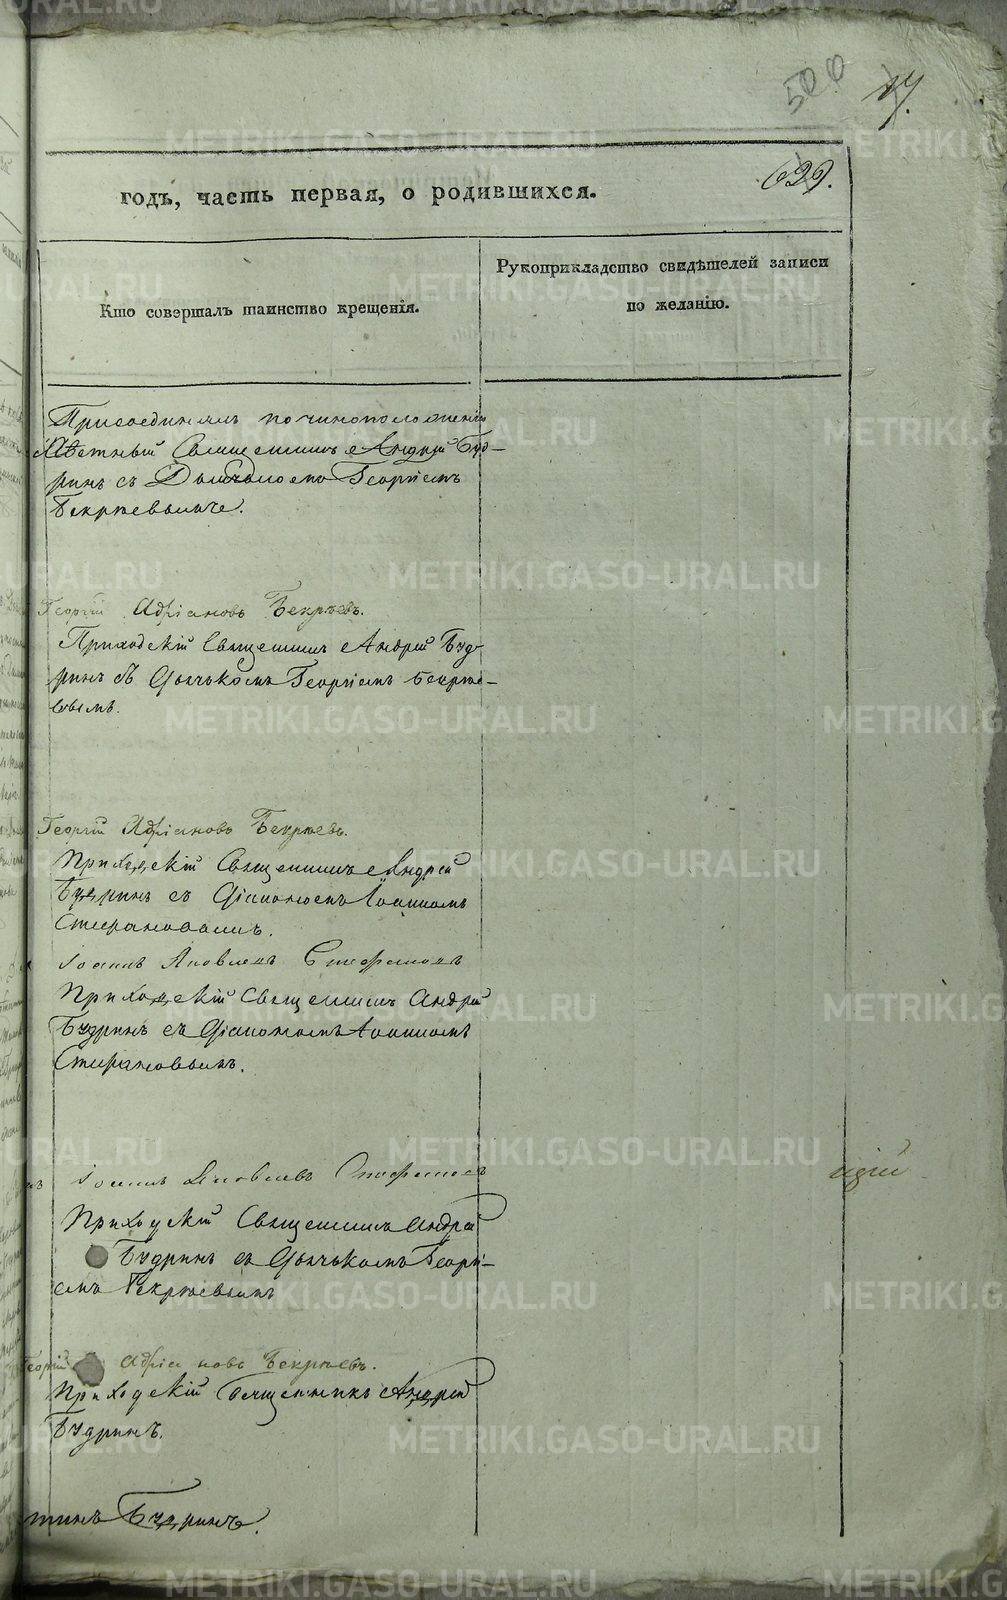 500
17.
629.
годъ, часть первая, о родившихся.
Кто совершалъ таинство крещенія.
Рукоприкладство свидѣтелей записи
по желанію.
Присоединялъ по чиноположенію
Священникъ Андрей Буд-
ринъ съ Дьячькомъ Георгіемъ
Бекряевымъ.
Георгій Адріановъ Бекряевъ.
Приходскій Священникъ Андрей Буд-
ринъ съ Дьячькомъ Георгіемъ Бекряе-
вымъ.
Георгій Адріановъ Бекряевъ.
Приходскій Священникъ Андрей
Будринъ съ Діакономъ Іоанномъ
Стефановымъ.
Іоаннъ Яковлевъ Стефановъ
Приходскій Священникъ Андрей
Будринъ съ Діакономъ Іоанномъ
Стефановымъ.
Іоаннъ Яковлевъ Стефановъ
Приходскій Священникъ Андрей
Будринъ съ Дьячькомъ Георгі-
емъ Бекряевымъ
Георгій Адріановъ Бекряевъ.
Приходскій Священникъ Андрей
Будринъ.
Будринъ.
METRIKI.GASO-URAL.RU